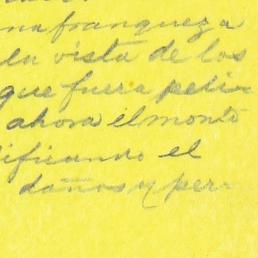 na franqueza
en vista de los
que fuera peli
ahora el monto
ificando el
daños y per